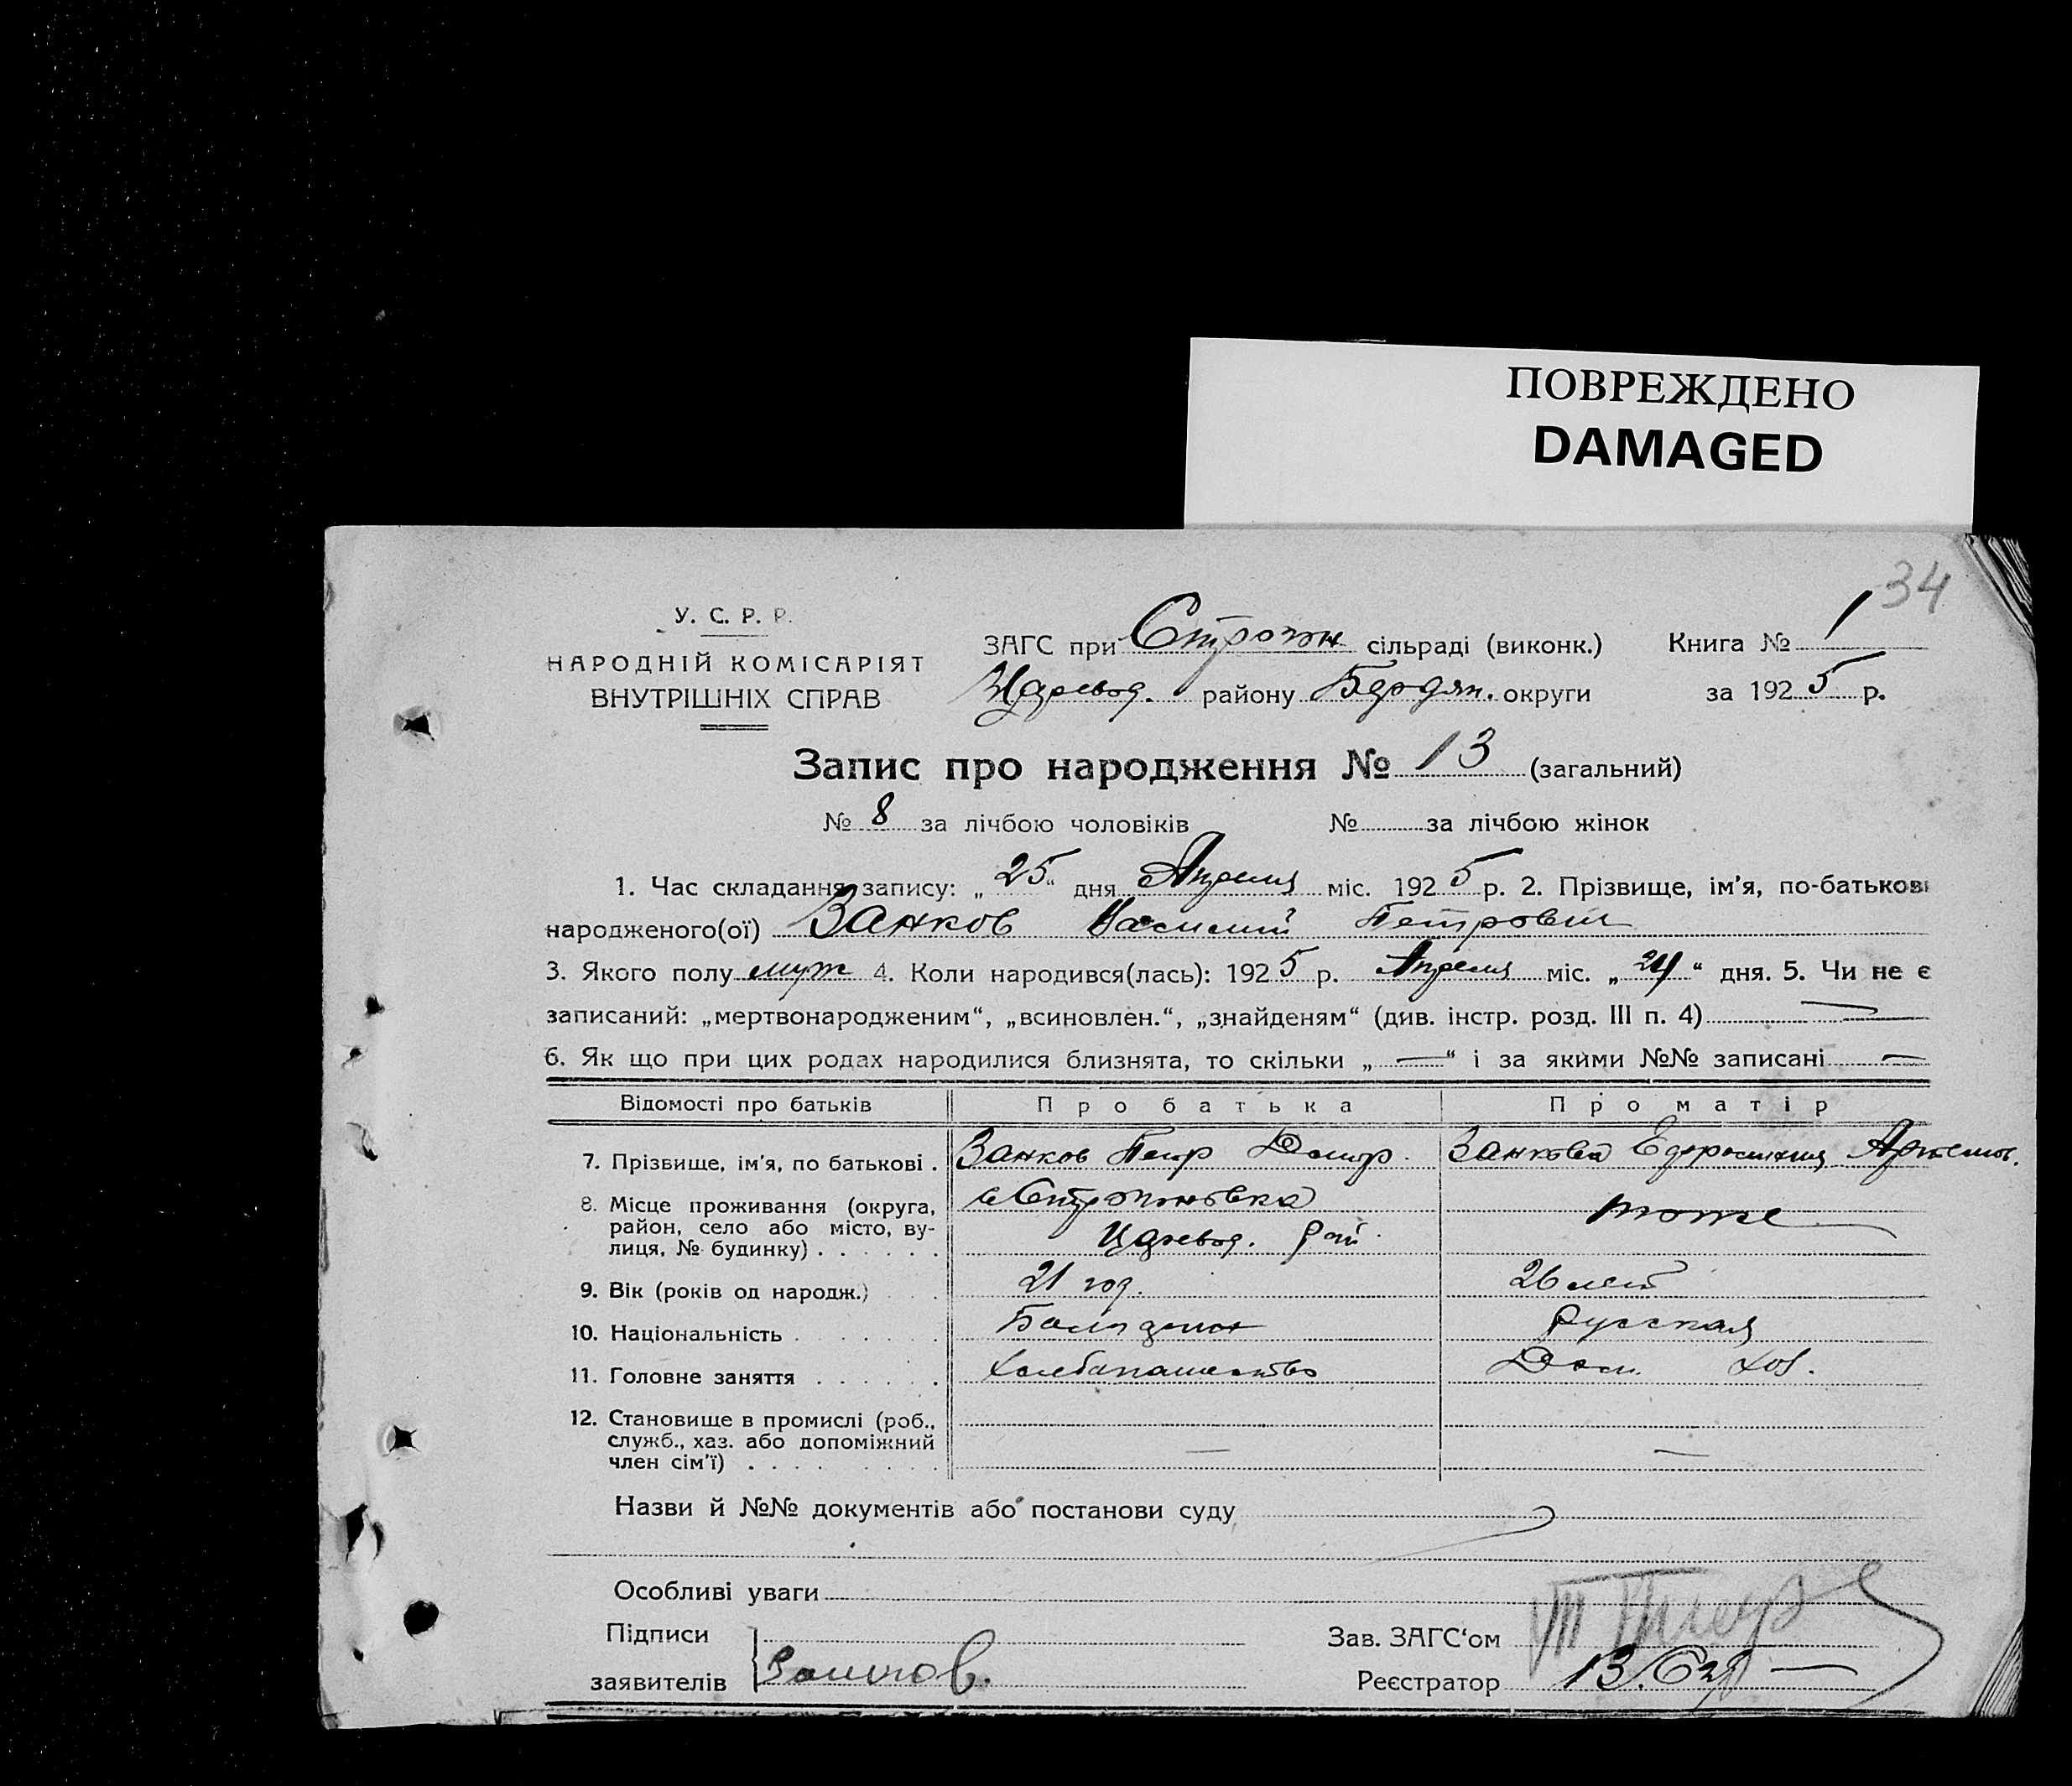 ПОВРЕЖДЕНО
DAMAGED
34
У. С. Р. Р.
НАРОДНІЙ КОМІСАРІЯТ
ВНУТРІШНІХ СПРАВ
ЗАГС при сільраді (виконк.) Книга № 1
Царевод. району Бердян. округи за 1925 р.
Запис про народження № 13 (загальний)
№ 8 за лічбою чоловіків № за лічбою жінок
1. Час складання запису: „25“ дня Апреля міс. 1925 р. 2. Прізвище, ім'я, по-батькові
народженого(ої) Занков Василий Петрович
3. Якого полу муж 4. Коли народився(лась): 1925 р. Апреля міс. „24“ дня. 5. Чи не є
записаний: „мертвонародженим“, „всиновлен.“, „знайденям“ (див. інстр. розд. III п. 4) —
6. Як що при цих родах народилися близнята, то скільки „—“ і за якими №№ записані —
Відомості про батьків Про батька Про матір
7. Прізвище, ім'я, по батькові . Занков Петр Занкова Артемов.
8. Місце проживання (округа,
район, село або місто, ву-
лиця, № будинку) . . . . . . Царевод. рай. тоже
9. Вік (років од народж.) . . 21 год. 26 лет
10. Національність . . . . . . Русская
11. Головне заняття . . . . . . Хлебопашество Дом. хоз.
12. Становище в промислі (роб.,
служб., хаз. або допоміжний
член сім'ї) . . . . — —
Назви й №№ документів або постанови суду
Особливі уваги
Підписи Зав. ЗАГС'ом
заявителів Занков. Реєстратор